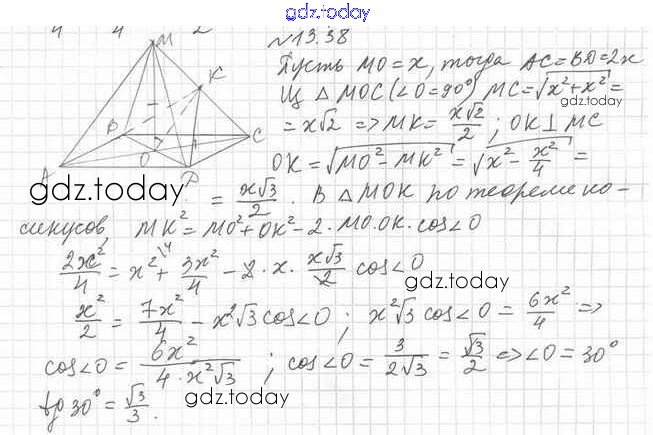 gdz.today
4 4 2
M
K
B
C
A
O
D
№13.38
Пусть MO = x, тогда AC = BD = 2x
Из △MOC (∠O = 90°) MC = √(x² + x²) =
gdz.today
= x√2 => MK = x√2/2 ; OK ⊥ MC
OK = √(MO² - MK²) = √(x² - x²/4) =
gdz.today
= x√3/2 . В △MOK по теореме ко-
синусов, MK² = MO² + OK² - 2·MO·OK·cos∠O
2x²/4 = x² + 3x²/4 - 2·x·x√3/2 cos∠O
gdz.today
x²/2 = 7x²/4 - x²√3 cos∠O ; x²√3 cos∠O = 6x²/4 =>
cos∠O = 6x²/(4·x²√3) ; cos∠O = 3/(2√3) = √3/2 => ∠O = 30°
tg 30° = √3/3.
gdz.today
gdz.today